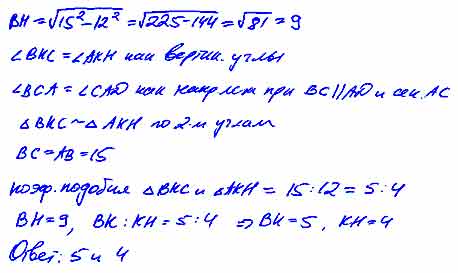 BH = √15² - 12² = √225 - 144 = √81 = 9
∠BKC = ∠AKH как вертик. углы
∠BCA = ∠CAD как накр леж при BC || AD и сек. AC
△BKC ~ △AKH по 2-м углам
BC = AB = 15
коэф. подобия △BKC и △AKH = 15 : 12 = 5 : 4
BH = 9, BK : KH = 5 : 4 ⇒ BK = 5, KH = 4
Ответ: 5 и 4